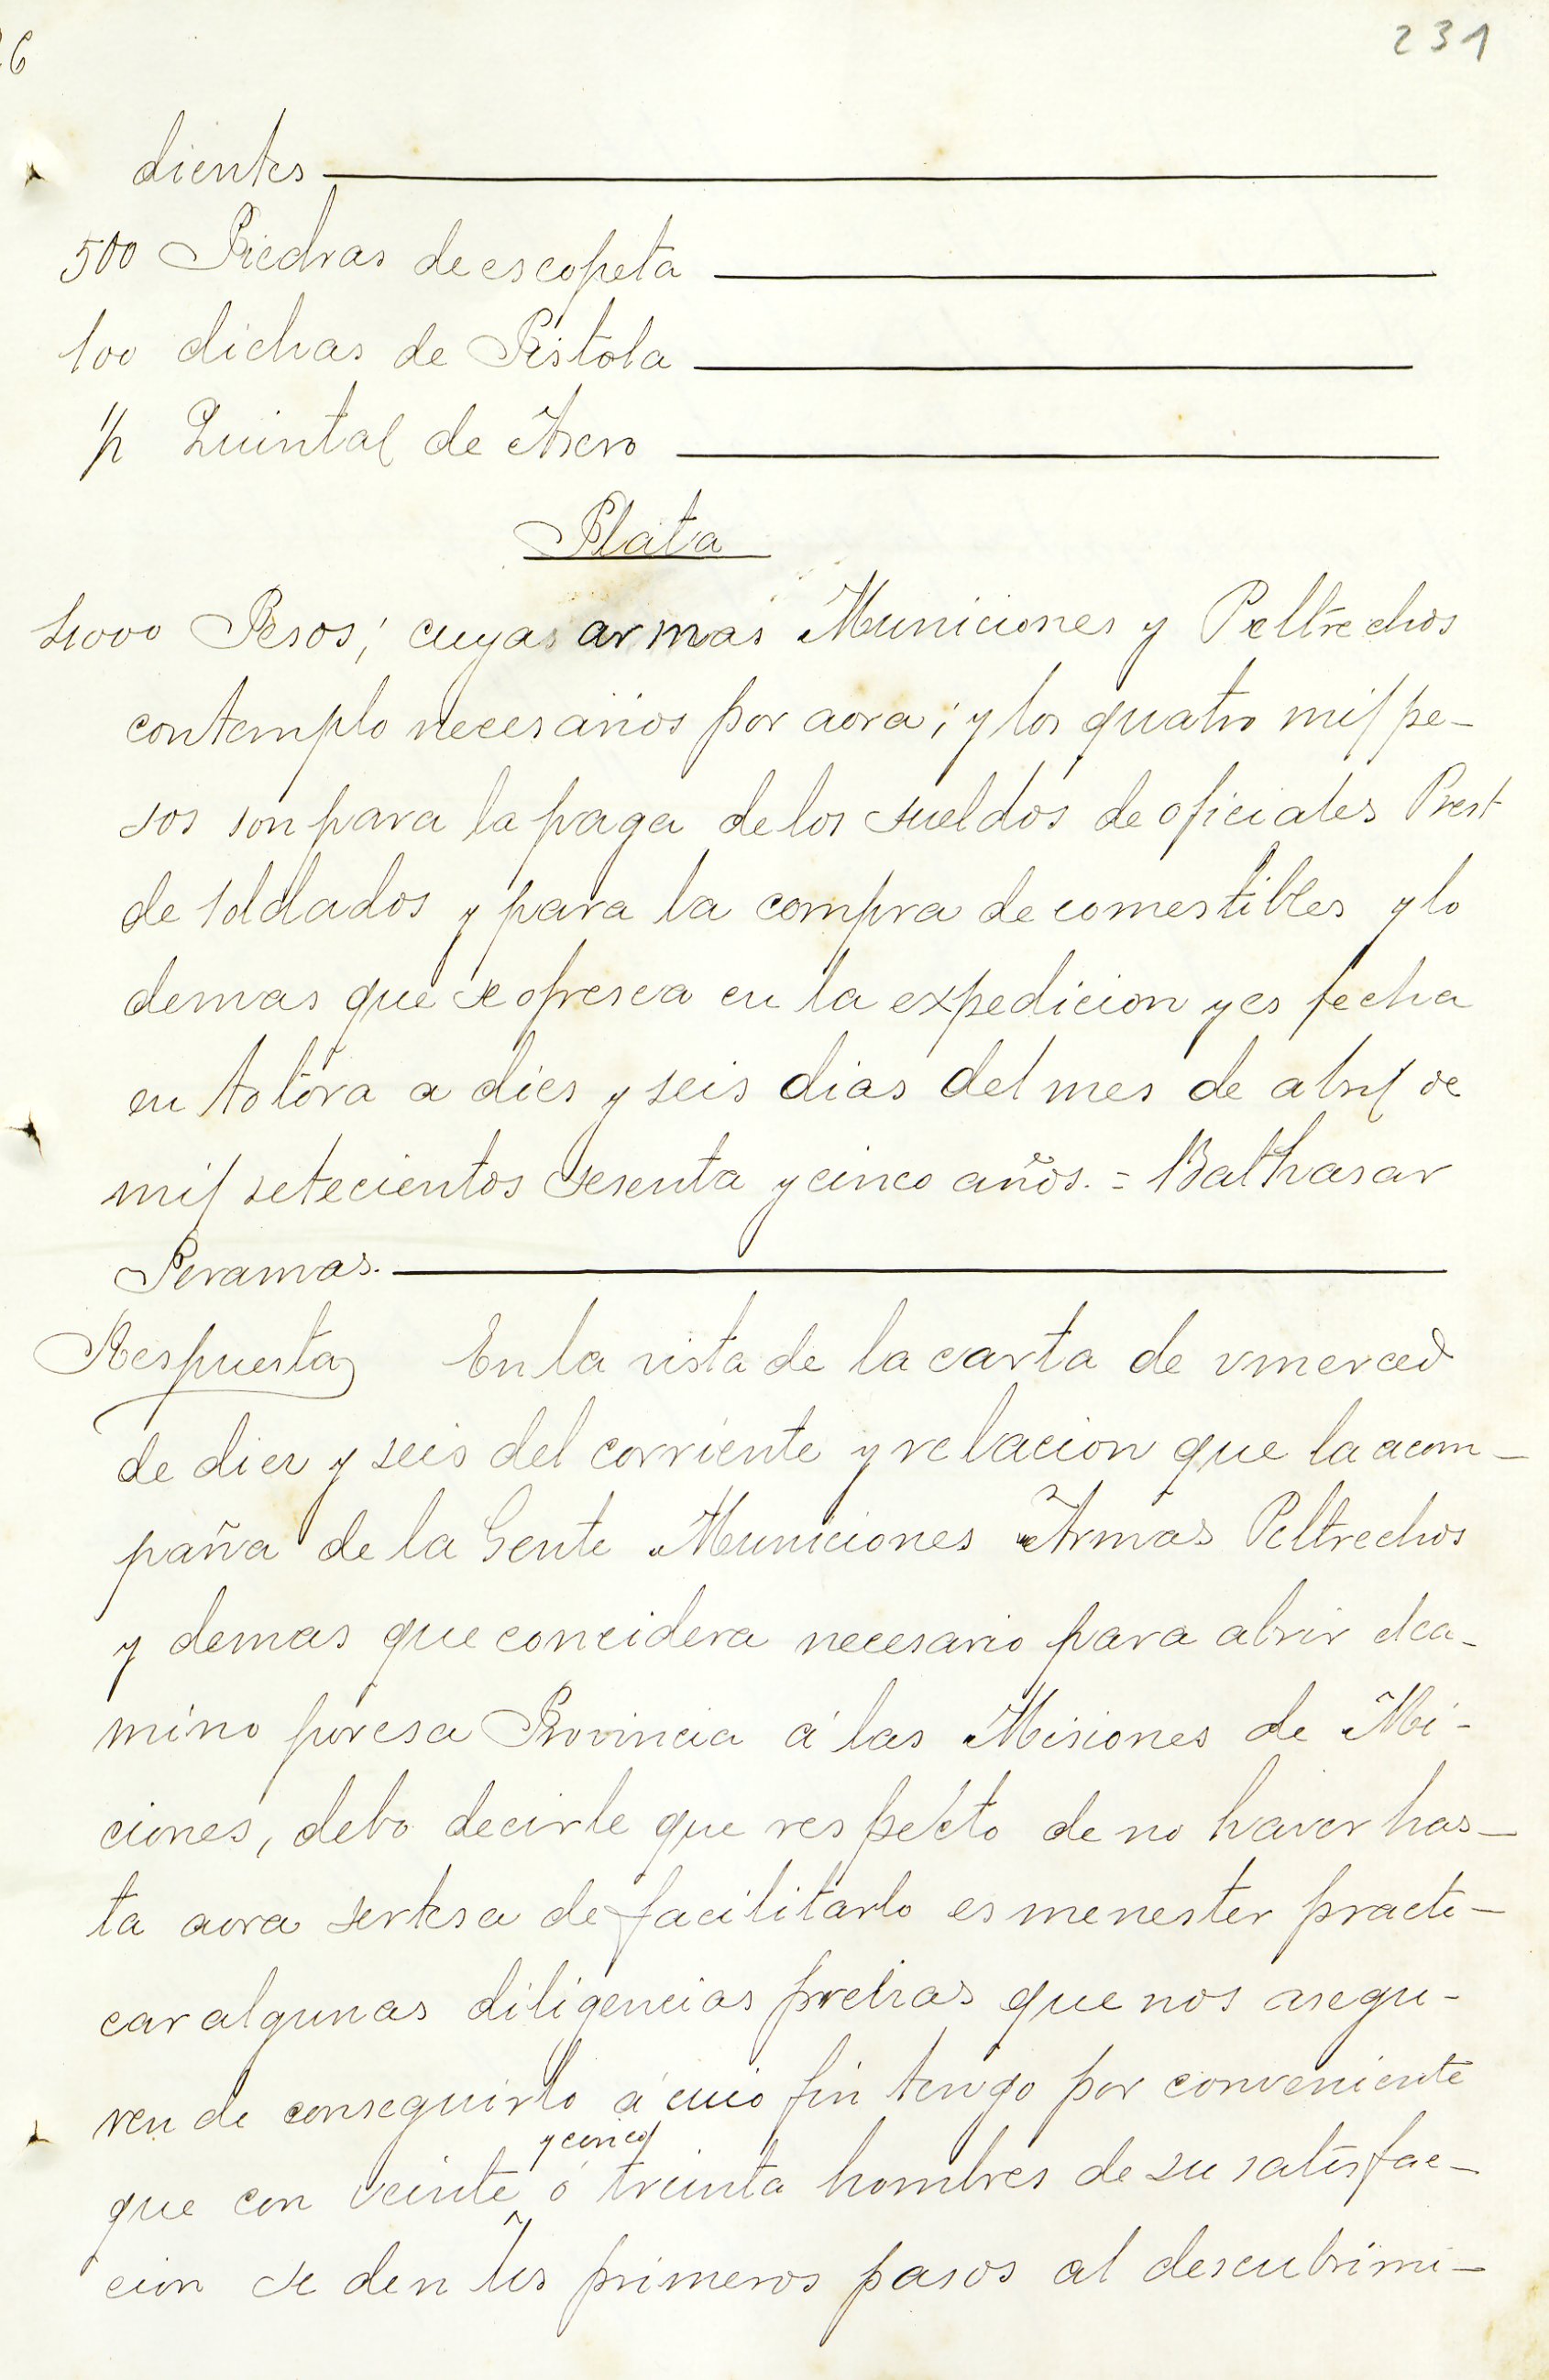 231
26
dientes
500 Piedras de escopeta
100 dichas de Pistola
1/2 Quintal de Asero
Plata
4000 Pesos; cuyas armas Municiones y Peltrechos
contemplo necesarios por aora; y los quatro mil pe-
sos son para la paga de los sueldos de oficiales Prest
de soldados y para la compra de comestibles y lo
demas que se ofresca en la expedicion y es fecha
en Totora a dies y seis dias del mes de abril de
mil setecientos sesenta y cinco años. = Balthasar
Peramas.
Respuesta En la vista de la carta de vmerced
de diez y seis del corriente y relacion que la acom-
paña de la Gente Municiones Armas Peltrechos
y demas que concidera necesario para abrir el ca-
mino por esa Provincia á las Misiones de Mi-
ciones, debo decirle que respecto de no haver has-
ta aora sertesa de facilitarlo es menester practi-
car algunas diligencias previas que nos asegu-
ren de conseguirlo á cuio fin tengo por conveniente
y cinco
que con veinte ó treinta hombres de su satisfac-
cion se den los primeros pasos al descubrimi-